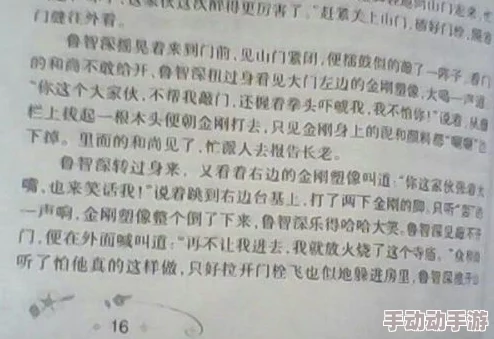 这家伙这次醉得更厉害了。”赶紧关上山门，插好门栓，
门缝往外看。
鲁智深摇晃着来到门前，见山门紧闭，便擂鼓似的敲了一阵子，看门
的和尚不敢给开，鲁智深扭过身看见大门左边的金刚塑像，大喝一声道
“你这个大家伙，不帮我敲门，还握着拳头吓唬我，我不怕你！”说着，从
栏上拔起一根木头便朝金刚打去，只见金刚身上的泥和颜料都“唰唰”
下掉。里面的和尚见了，忙派人去报告长老。
鲁智深转过身来，又看着右边的金刚塑像叫道：“你这家伙张着大
嘴，也来笑话我！”说着跳到右边台基上，打了两下金刚的脚，只听“轰”的
一声响，金刚塑像整个倒了下来，鲁智深乐得哈哈大笑。鲁智深见敲不开
门，便在外面喊叫道：“再不让我进去，我就放火烧了这个寺庙。”众和尚
听了怕他真的这样做，只好拉开门栓飞也似地躲进房里，鲁智深推开
16
手动动手游
www.sddsy.com